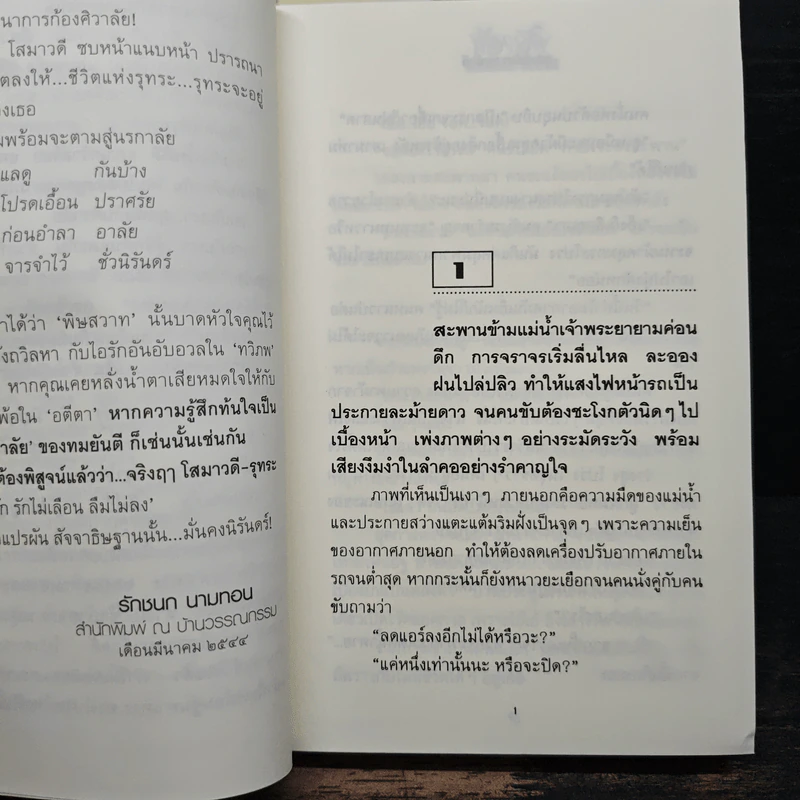 นาการก้องศิวาลัย!
โสมาวดี ซบหน้าแนบหน้า ปรารถนา
ตลงให้...ชีวิตแห่งรุทระ...รุทระจะอยู่
องเธอ
มพร้อมจะตามสู่นรกาลัย
แลดู กันบ้าง
โปรดเอื้อน ปราศรัย
ก่อนอำลา อาลัย
จารจำไว้ ชั่วนิรันดร์
าได้ว่า ‘พิษสวาท’ นั้นบาดหัวใจคุณไว้
ังถวิลหา กับไอรักอันอับอวลใน ‘ทวิภพ’
หากคุณเคยหลั่งน้ำตาเสียหมดใจให้กับ
พ้อใน ‘อตีตา’ หากความรู้สึกท้นใจเป็น
าลัย’ ของทมยันตี ก็เช่นนั้นเช่นกัน
ต้องพิสูจน์แล้วว่า...จริงฤา โสมาวดี-รุทระ
ัก รักไม่เลือน ลืมไม่ลง’
แปรผัน สัจจาธิษฐานนั้น...มั่นคงนิรันดร์!
รักชนก นามทอน
สำนักพิมพ์ ณ บ้านวรรณกรรม
เดือนมีนาคม ๒๕๔๔
1
สะพานข้ามแม่น้ำเจ้าพระยายามค่อน
ดึก การจราจรเริ่มลื่นไหล ละออง
ฝนโปล่ปลิว ทำให้แสงไฟหน้ารถเป็น
ประกายละม้ายดาว จนคนขับต้องชะโงกตัวนิดๆ ไป
เบื้องหน้า เพ่งภาพต่างๆ อย่างระมัดระวัง พร้อม
เสียงงึมงำในลำคออย่างรำคาญใจ
ภาพที่เห็นเป็นเงาๆ ภายนอกคือความมืดของแม่น้ำ
และประกายสว่างแตะแต้มริมฝั่งเป็นจุดๆ เพราะความเย็น
ของอากาศภายนอก ทำให้ต้องลดเครื่องปรับอากาศภายใน
รถจนต่ำสุด หากกระนั้นก็ยังหนาวยะเยือกจนคนนั่งคู่กับคน
ขับถามว่า
“ลดแอร์ลงอีกไม่ได้หรือวะ?”
“แค่หนึ่งเท่านั้นนะ หรือจะปิด?”
1